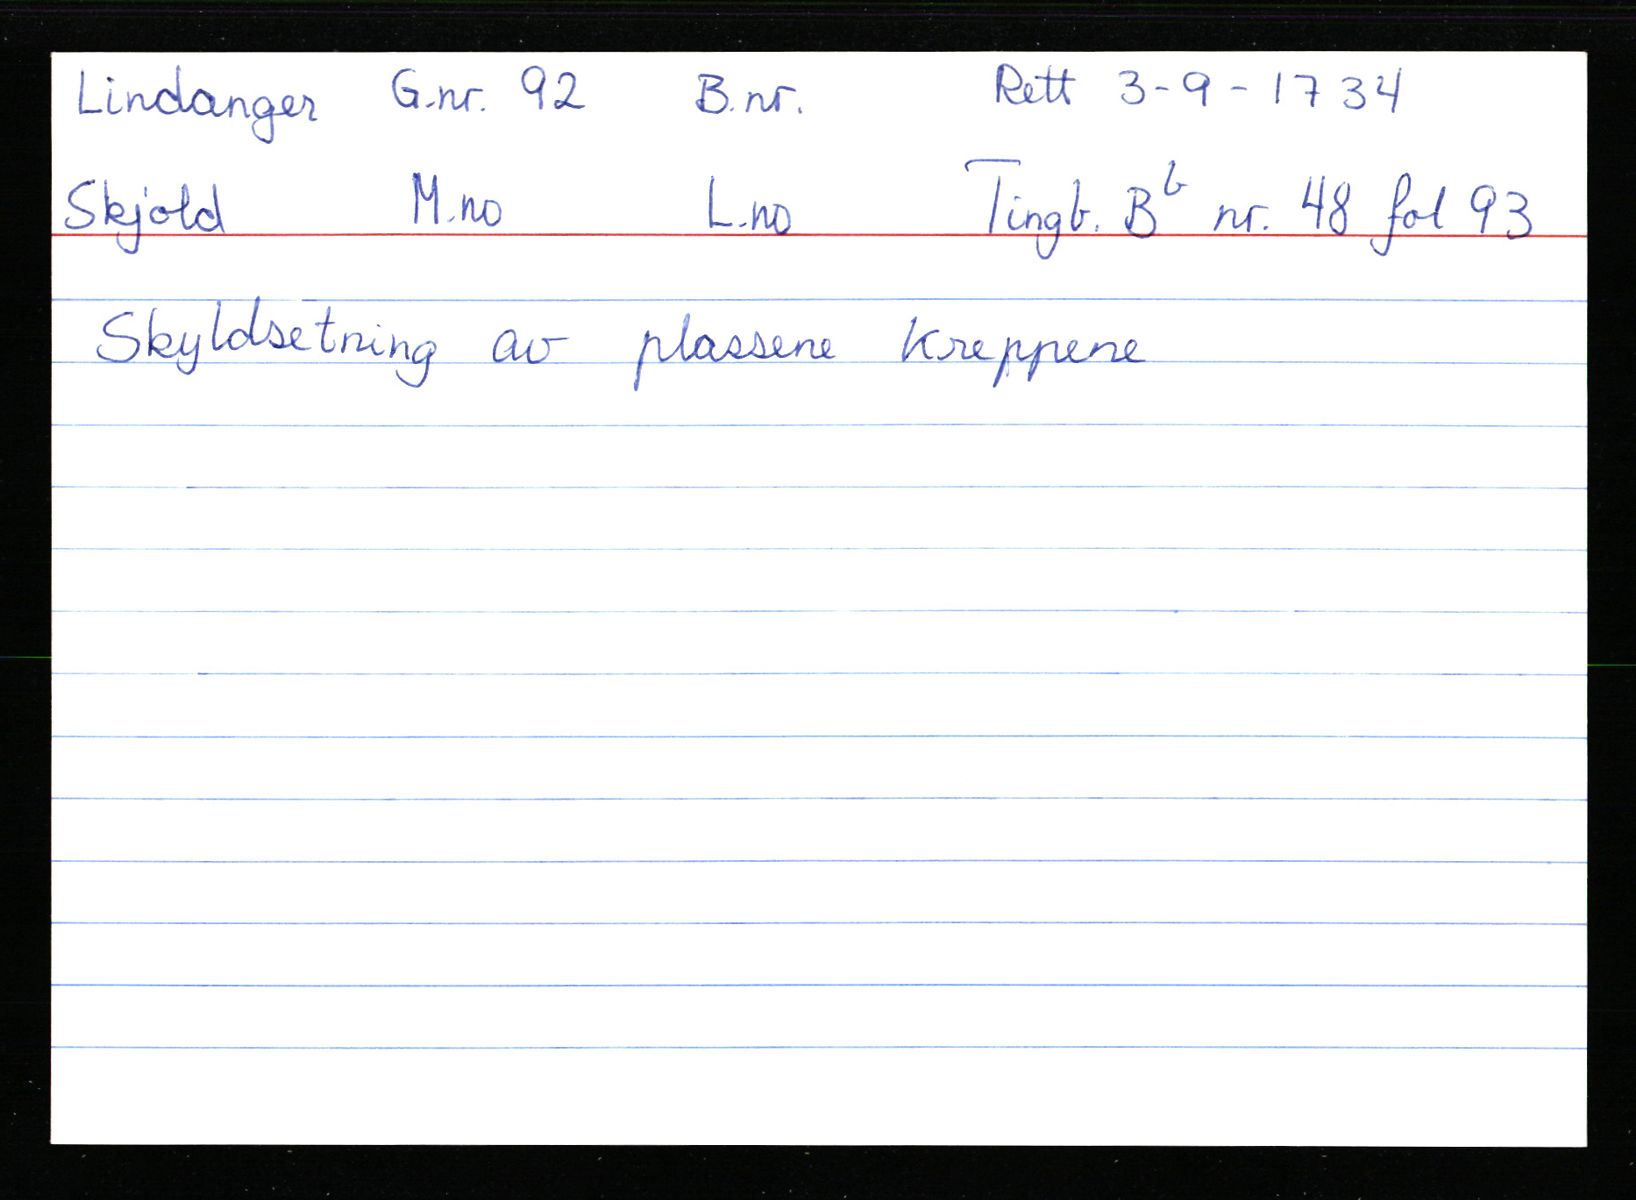 Lindanger G.nr. 92 B.nr. Rett 3-9-1734
Skjold M.no L.no Tingb. Bb nr. 48 fol 93
Skyldsetning av plassene Kreppene